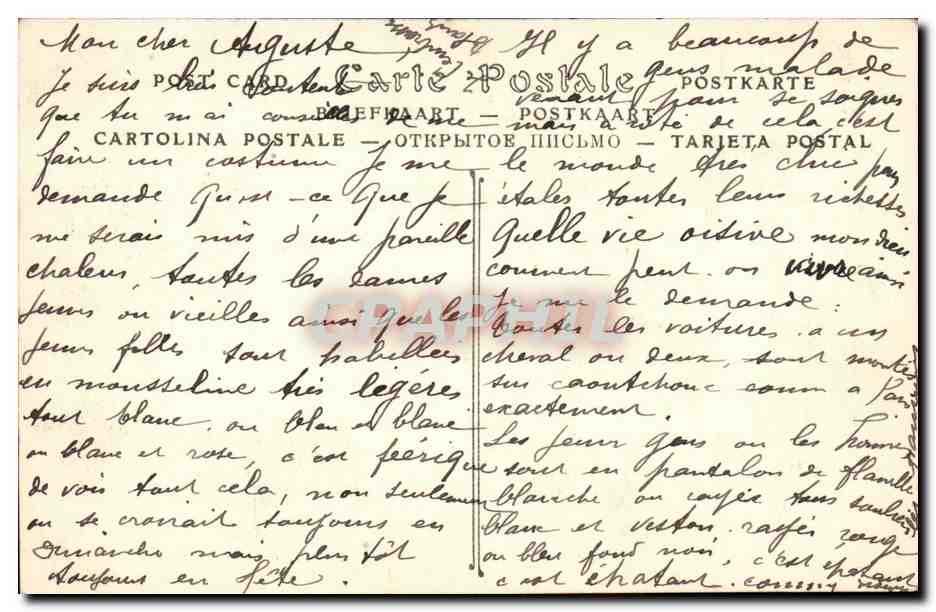 Mon cher Auguste,
Je suis très content
que tu m'ai conseillé de me
faire un costume Je me
demande Qu'est-ce Que je
me serais mis d'une pareille
chaleur, toutes les dames
jeunes ou vieilles ainsi que les
jeunes filles sont habillées
en mousseline très légére
tout blanc, ou bleu et blanc
ou blanc et rose, c'est féérique
de voir tout cela, non seulement
on se croirait toujours en
dimanche mais plutôt
toujours en fête.
POST CARD Carte Postale POSTKARTE
BRIEFKAART — POSTKAART
CARTOLINA POSTALE — ОТКРЫТОЕ ПИСЬМО — TARJETA POSTAL
Il y a beaucoup de
gens malade
venant pour se soigner
mais à côté de cela c'est
le monde très chic
étales toutes leurs richesses
Quelle vie oisive mon dieu
comment peut-on vivre ainsi
Je me le demande.
Toutes les voitures a un
cheval ou deux, sont montés
sur caoutchouc comm a Paris
exactement.
Les jeunes gens ou les hommes
sont en pantalon de flanelle
blanche ou rayée tous souliers
blanc et veston rayés rouge
ou bleu fond noir, c'est épatant
c'est épatant.
CPAPHIL